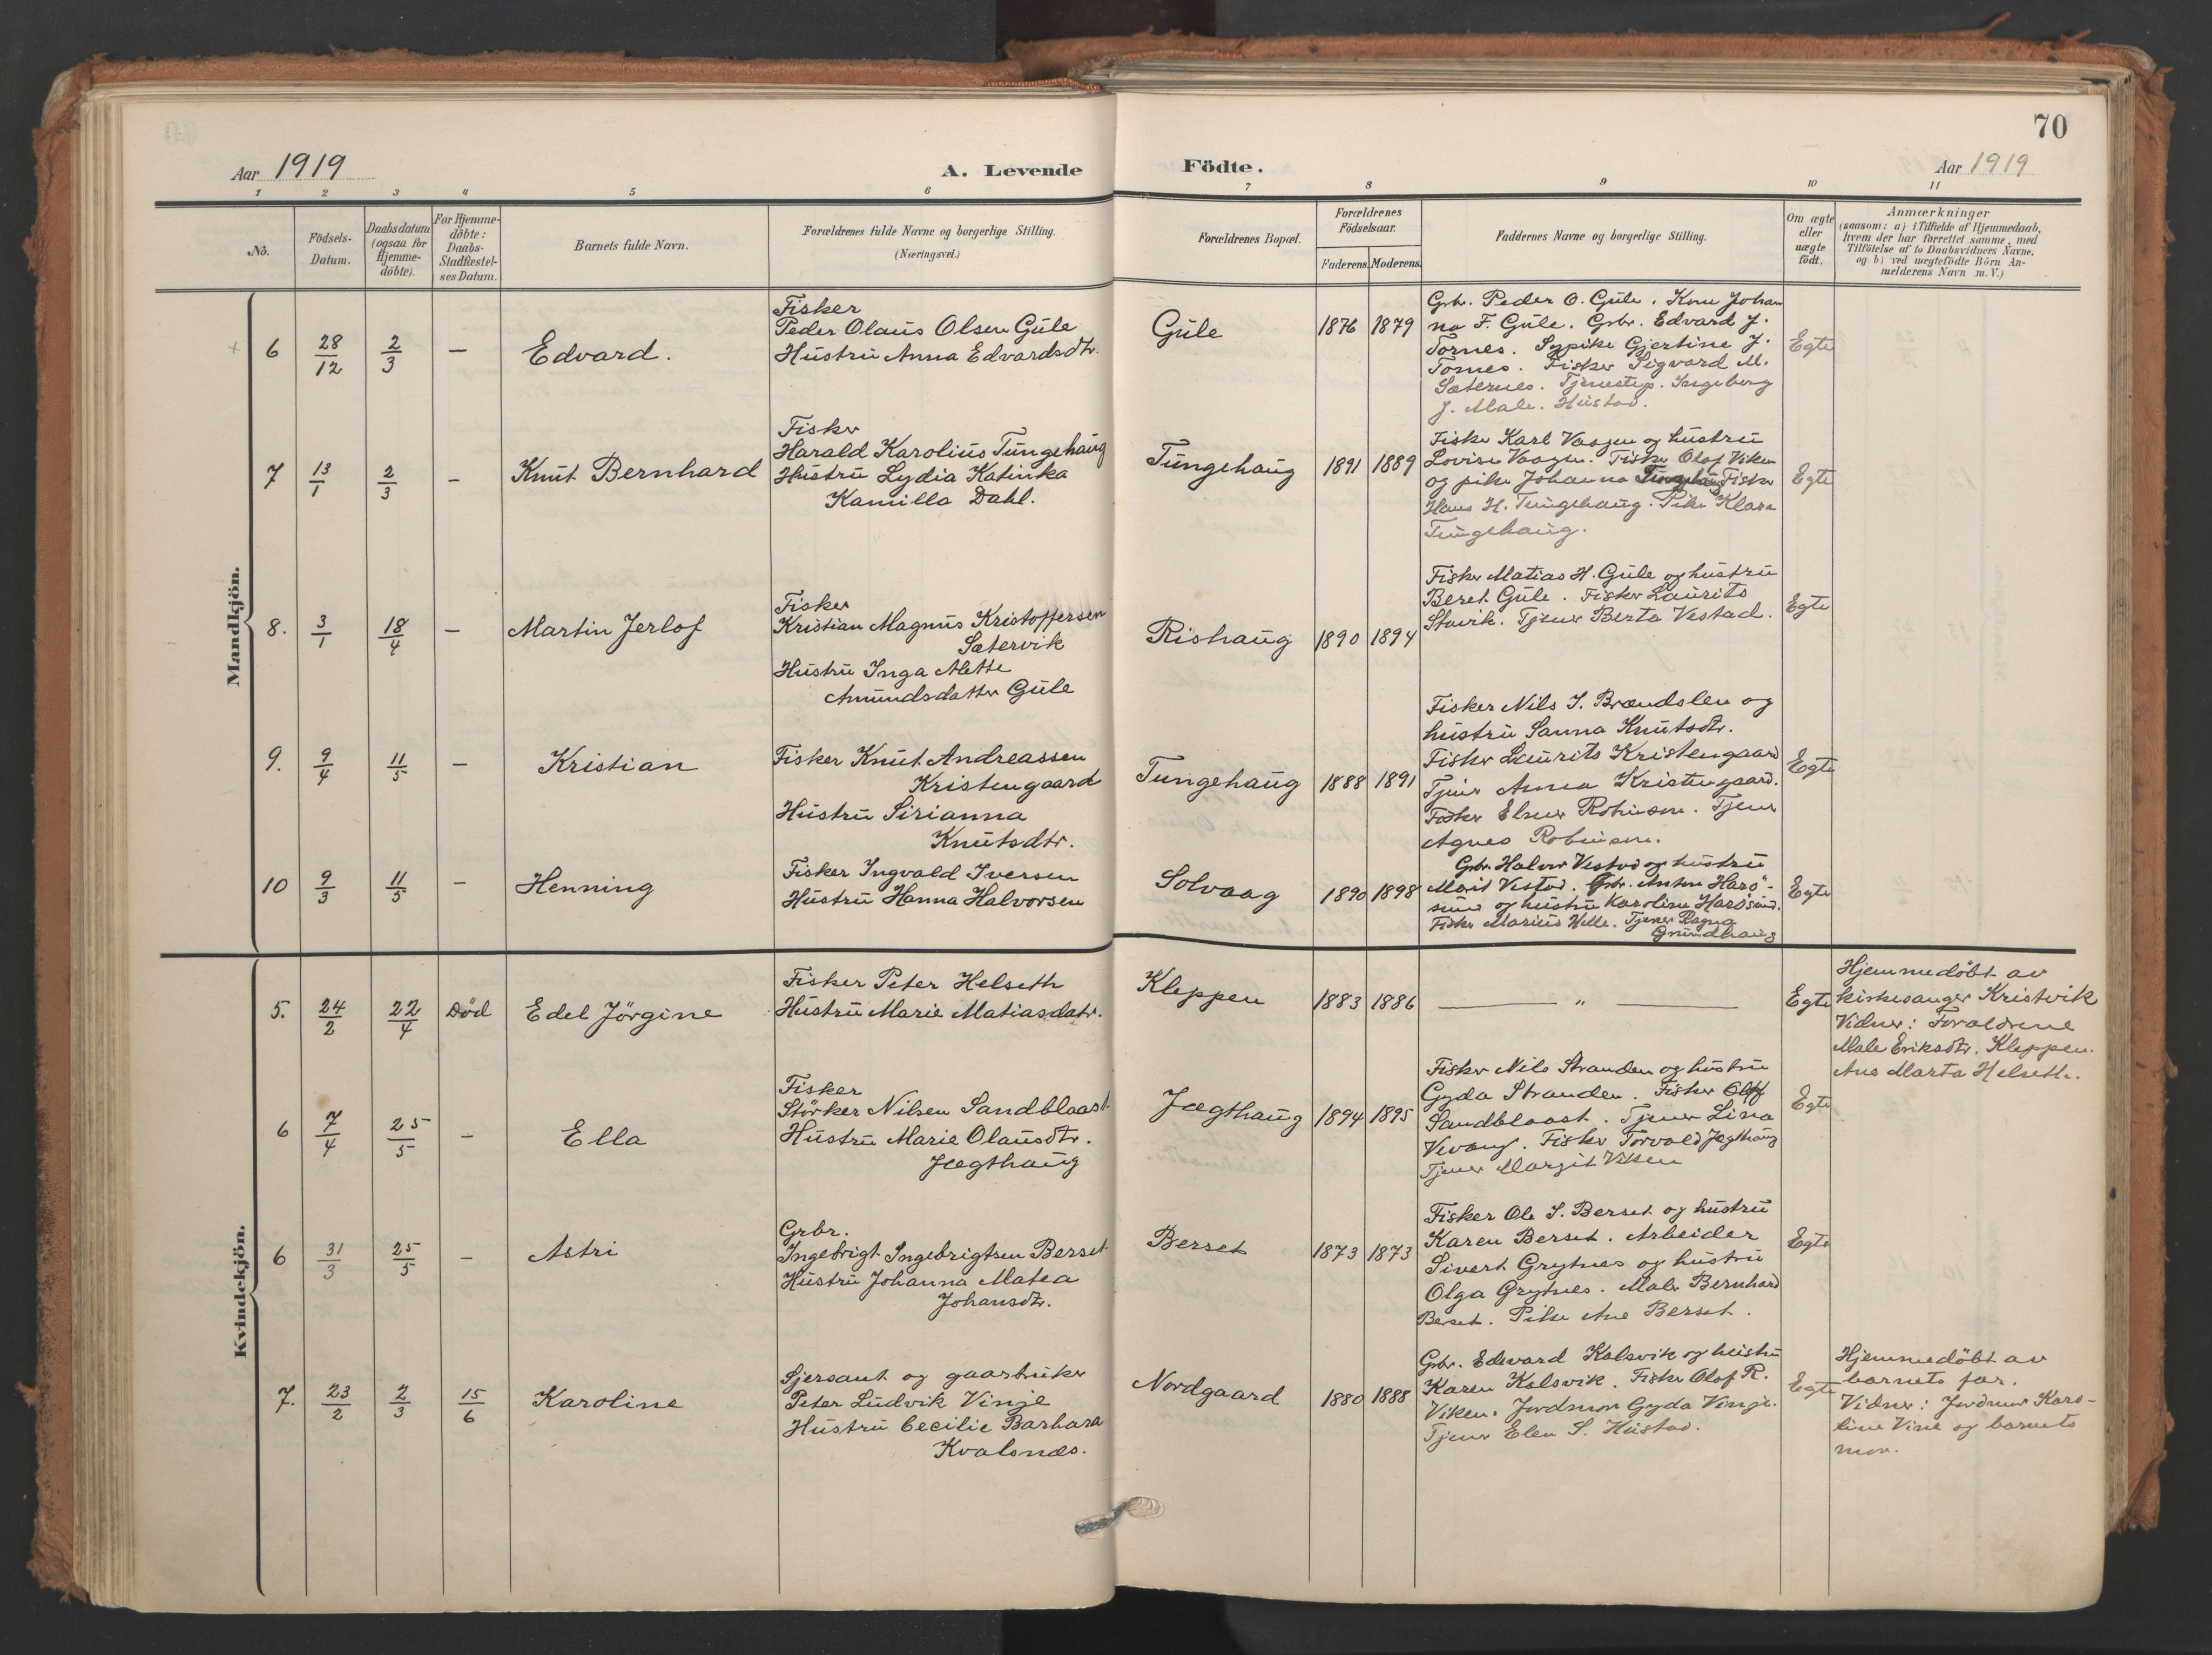 70
Aar 1919
A. Levende Födte.
Aar 1919
1 2 3 4 5 6 7 8 9 10 11
No.
Födsels-
Datum.
Daabsdatum
(ogsaa for
Hjemme-
döbte).
For Hjemme-
döbte:
Daabs-
Stadfæstel-
ses Datum.
Barnets fulde Navn.
Forældrenes fulde Navne og borgerlige Stilling.
(Næringsvei.)
Forældrenes Bopæl.
Forældrenes
Födselsaar.
Faderens. Moderens.
Faddernes Navne og borgerlige Stilling.
Om ægte
eller
uægte
födt.
Anmærkninger
(saasom: a) i Tilfælde af Hjemmedaab,
hvem der har forrettet samme, med
Tilföielse af to Daabsvidners Navne,
og b) ved uægtefödte Börn An-
melderens Navn m. V.)
Mandkjön.
6 28/12 2/3 — Edvard.
Fisker
Peder Olaus Olsen Gule
Hustru Anna Edvardsdtr.
Gule 1876 1879
Grbr. Peder O. Gule. Kone Johan
na F. Gule. Grbr. Edvard J.
Tornes. Sypike Gjertine J.
Tornes. Fisker Sigvard M.
Sæternes. Tjenestep. Ingeborg
J. Male. Hustad.
Egte
7 13/1 2/3 - Knut Bernhard
Fisker
Harald Karolius Tungehaug
Hustru Lydia Katinka
Kamilla Dahl.
Tungehaug 1891 1889
Fisker Karl Vaagen og hustru
Lovise Vaagen. Fisker Olaf Viken
og pike Johanna Tungehaug Fisker
Hans H. Tungehaug. Pike Klara
Tungehaug.
Egte
8. 3/1 18/4 — Martin Jerlof
Fisker
Kristian Magnus Kristoffersen
Sætervik
Hustru Inga Mette
Amundsdatter Gule
Rishaug 1890 1894
Fisker Matias H. Gule og hustru
Beret Gule. Fisker Laurits
Stavik. Tjener Berta Vestad.
Egte
9. 9/4 11/5 — Kristian
Fisker Knut Andreassen
Kristengaard
Hustru Sirianna
Knutsdtr.
Tungehaug 1888 1891
Fisker Nils J. Brandslen og
hustru Sanna Knutsdtr.
Fisker Laurits Kristengaard
Tjener Anna Kristengaard.
Fisker Elmer Robinson. Tjener
Agnes Robinson.
Egte
10 9/3 11/5 - Henning
Fisker Ingvald Iversen
Hustru Hanna Halvorsen
Solvaag 1890 1898
Grbr. Halvor Vestad og hustru
Marit Vestad. Grbr. Anton Harö-
sund og hustru Karoline Harösund.
Fisker Marius Welle. Tjener Ragna
Grundhaug
Egte
Kvindekjön.
5. 24/2 22/4 Död Edel Jörgine
Fisker Peter Helseth
Hustru Marie Matiasdatr.
Kleppen 1883 1886
— „ —
Egte
Hjemmedöbt av
kirkesanger Kristvik
Vidner: Foraldrene
Male Eriksdtr. Kleppen.
Ane Marta Helseth.
6 7/4 25/5 - Ella
Fisker
Störker Nilsen Sandblaast
Hustru Marie Olausdtr.
Jægthaug
Jægthaug 1894 1895
Fisker Nils Stranden og hustru
Gyda Stranden. Fisker Olaf
Sandblaast. Tjener Lina
Vevang. Fisker Torvald Jægthaug
Tjener Margit Viken
Egte
6 31/3 25/5 - Astri
Grbr.
Ingebrigt Ingebrigtsen Berset
Hustru Johanna Matea
Johansdtr.
Berset 1873 1873
Fisker Ole I. Berset og hustru
Karen Berset. Arbeider
Sivert Grytnes og hustru
Olga Grytnes. Maler Bernhard
Berset. Pike Ane Berset.
Egte
7. 23/2 2/3 15/6 Karoline
Sjersant og gaarbruker
Peter Ludvik Vinje
Hustru Cecilie Barbara
Kvalsnæs.
Nordgaard 1880 1888
Grbr. Edevard Kalsvik og hustru
Karen Kalsvik. Fisker Olaf R.
Viken. Jordmor Gyda Vinje.
Tjener Elen S. Hustad.
Egte
Hjemmedöbt av
barnets far.
Vidner: Jordmor Karo-
line Vine og barnets
mor.